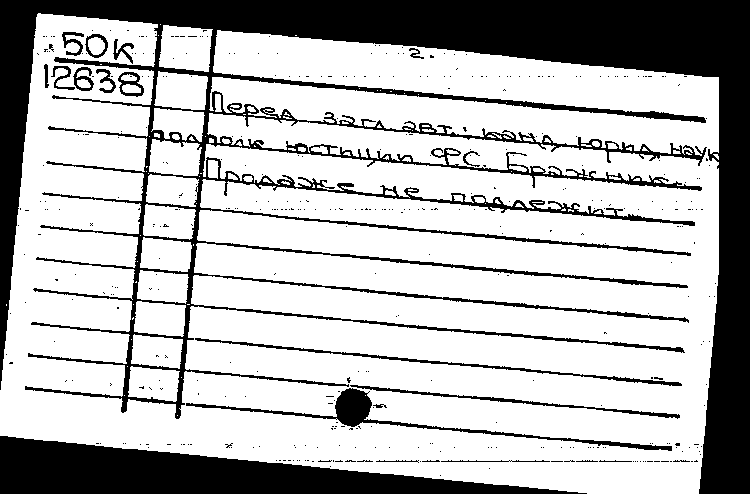 50к
2.
12638
Перед загл. авт.: канд. юрид. наук
подполк. юстиции Ф.С. Бражник.
Продаже не подлежит.